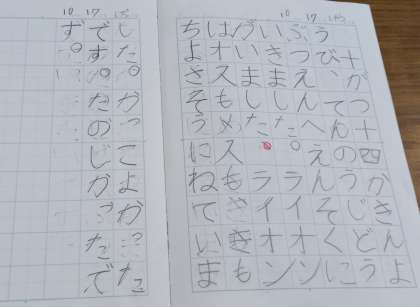 十がつ十四かきんよ
うび、てんのうじどう
ぶつえんへえんそくに
いきました。ライオン
がいました。ライオン
はオスもめスもやきも
ちよさそうにねていま
した。かっこよかった
です。たのしかったで
す。
10 17
10 17